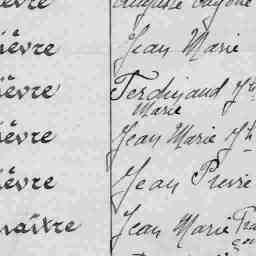 èvre Auguste
ièvre Jean Marie
ièvre Ferdinand
Marie
ièvre Jean Marie
ièvre Jean Pierre
maître Jean Marie